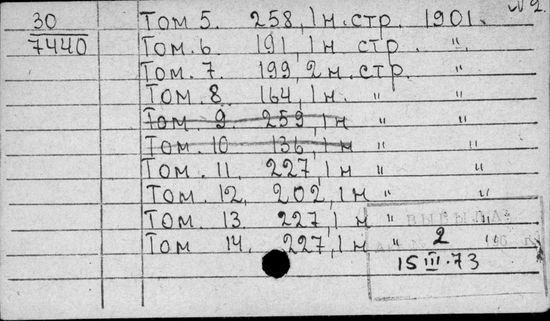 №2.
30 Том 5. 258, 1 н. стр. 1901.
7440 Том. 6 191, 1 н стр. "
Том. 7. 199, 2 н. стр. "
Том. 8. 164, 1 н. " "
Том 9 259, 1 н " "
Том. 10 136, 1 н " "
Том. 11. 227, 1 н " "
Том. 12. 202, 1 н " "
Том. 13 227, 1 н " "
Том 14. 227, 1 н " "
2
15 III.73